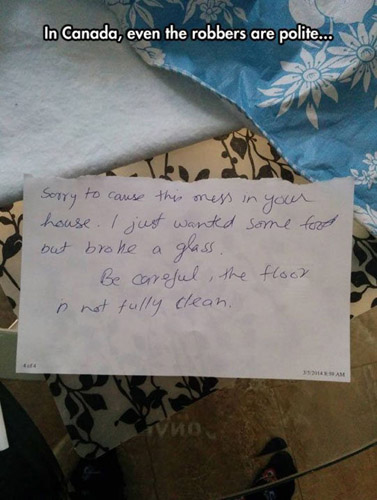 In Canada, even the robbers are polite...
Sorry to cause this mess in your
house. I just wanted some food
but broke a glass.
Be careful, the floor
is not fully clean.
4 of 4
3/5/2014 8:38 AM